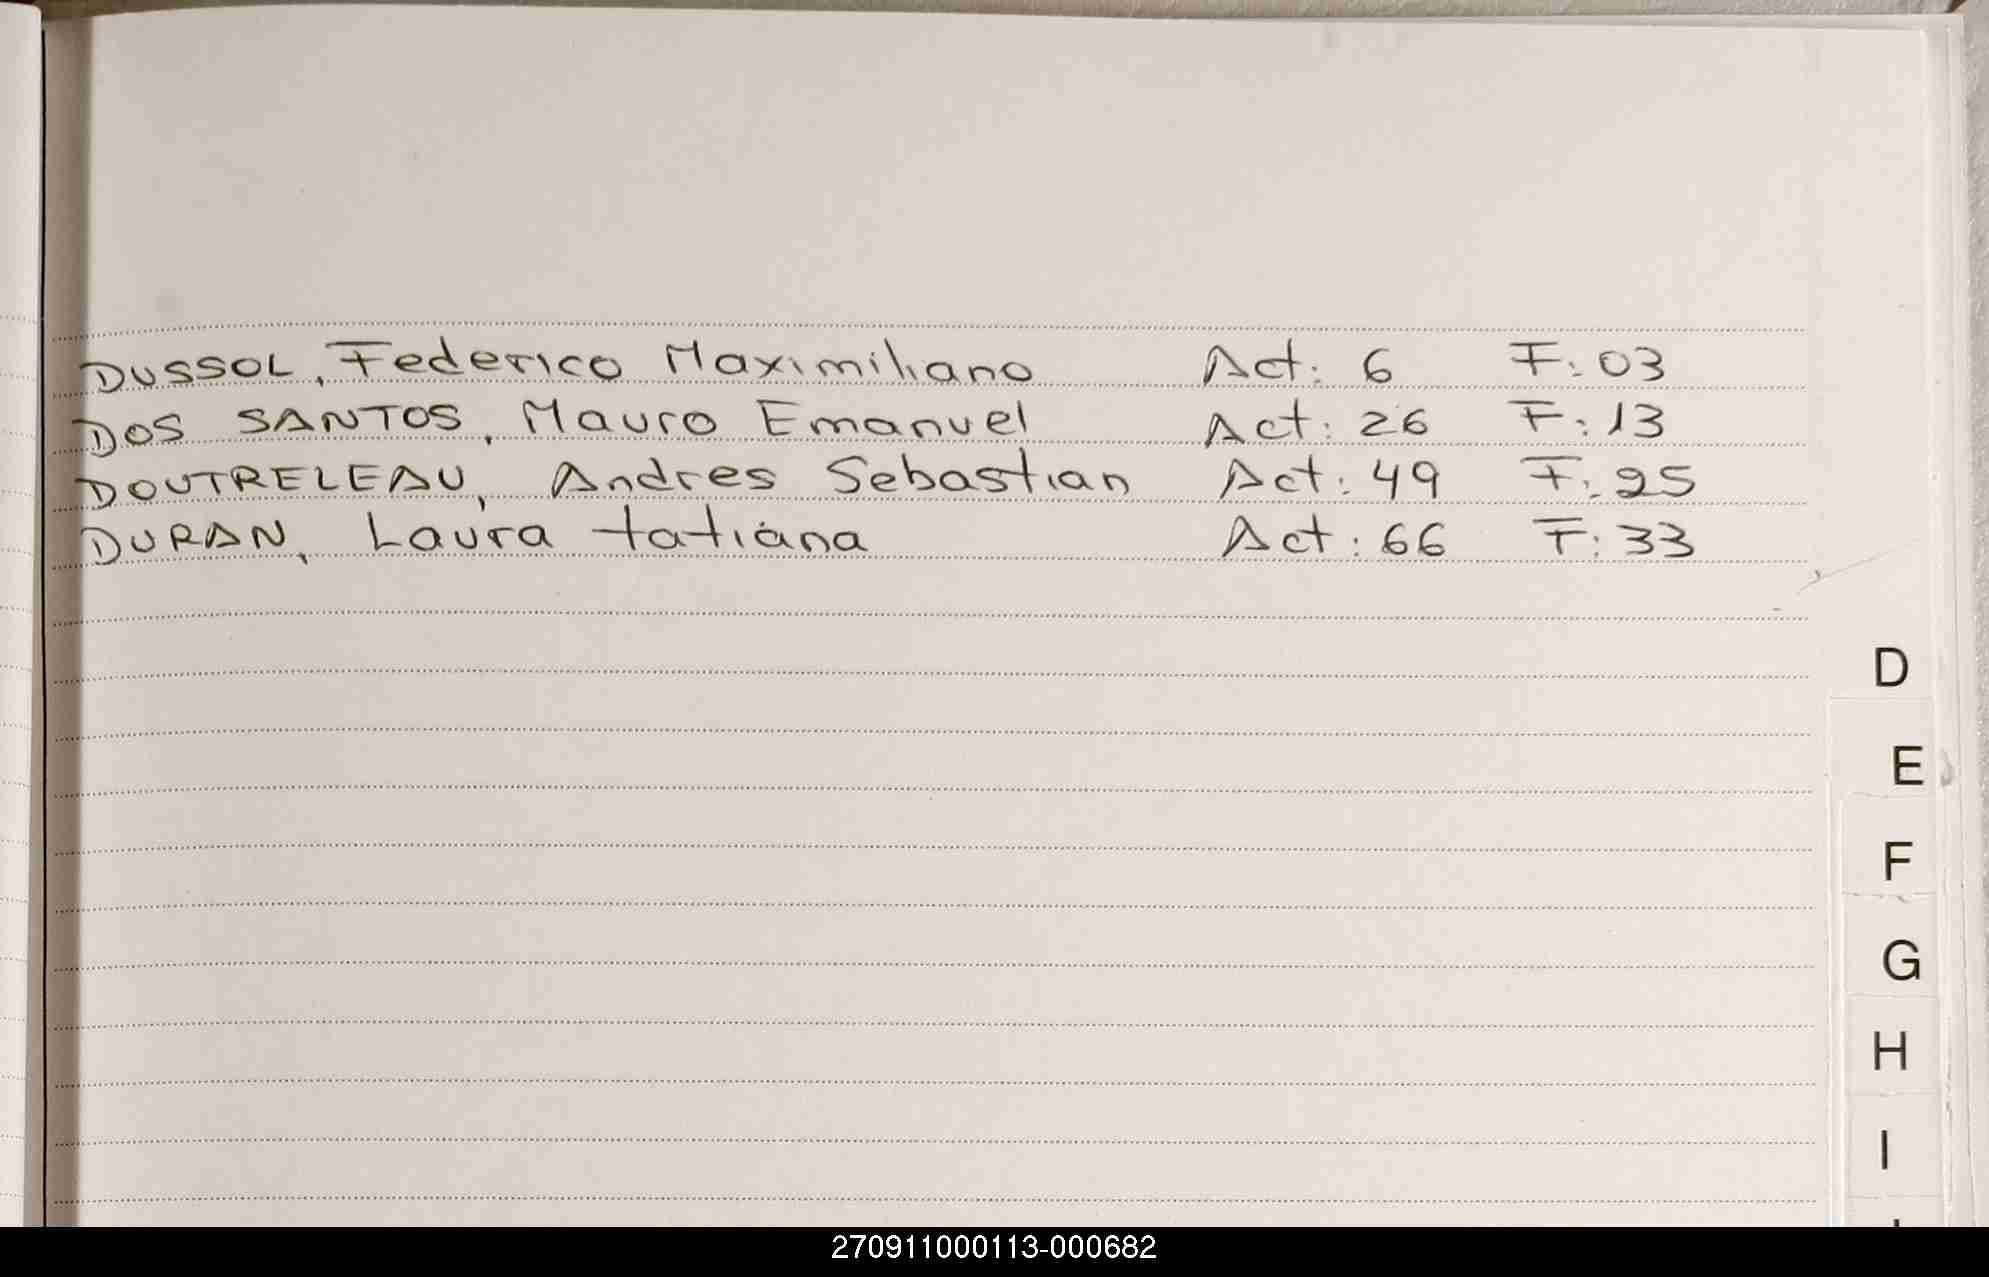 DUSSOL, Federico Maximiliano Act: 6 F: 03
DOS SANTOS, Mauro Emanuel Act: 26 F: 13
DOUTRELEAU, Andres Sebastian Act: 49 F: 25
DURAN, Laura tatiana Act: 66 F: 33
D
E
F
G
H
I
270911000113-000682